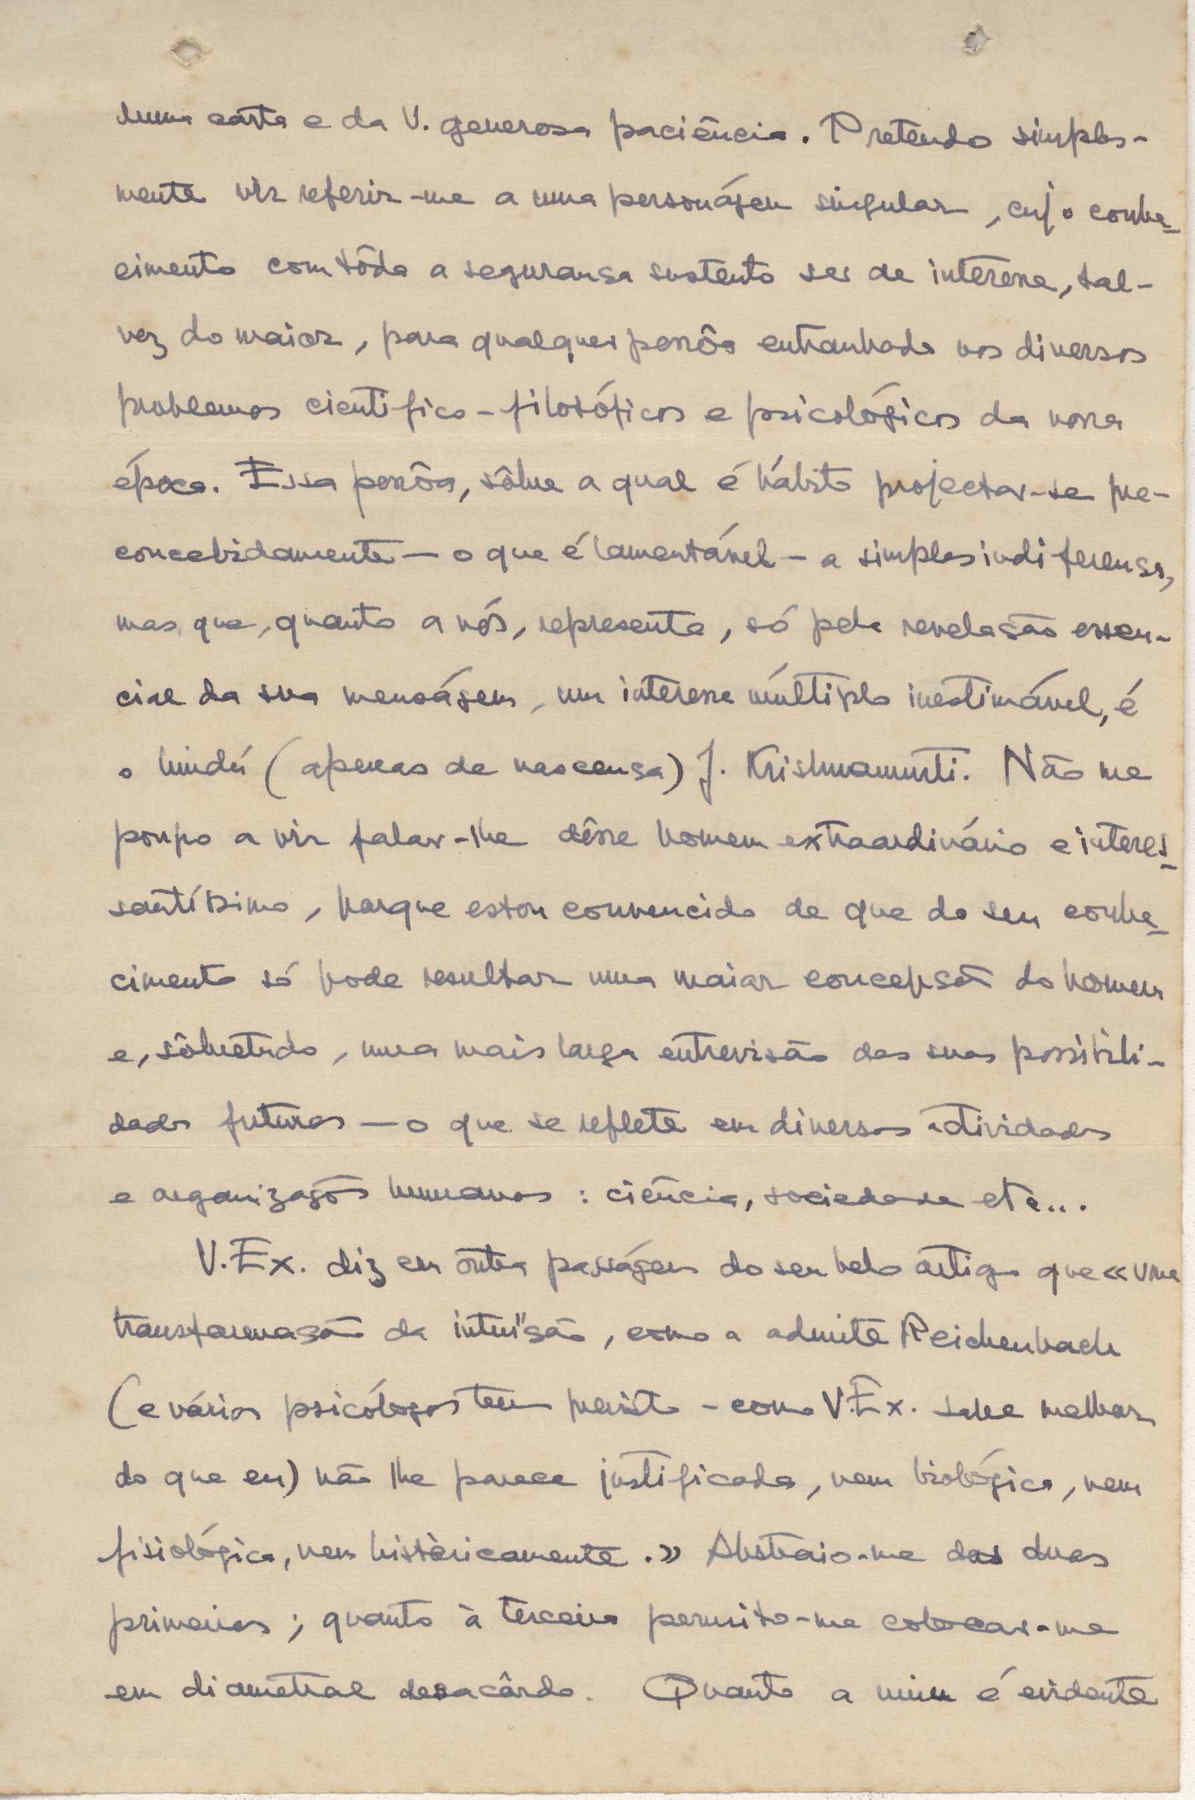 duma carta e da V. generosa paciência. Pretendo simples-
mente vir referir-me a uma personágem singular, cujo conhe-
cimento com tôda a segurança sustento ser de interesse, tal-
vez do maior, para qualquer pessôa entranhada nos diversos
problemas cientifico-filosóficos e psicológicos da nossa
época. Essa pessôa, sôbre a qual é hábito projectar-se pre-
concebidamente — o que é lamentável — a simples indiferença,
mas que, quanto a nós, representa, só pela revelação essen-
cial da sua menságem, um interesse múltiplo inestimável, é
o hindú (apenas de nascença) J. Krishnamurti. Não me
poupo a vir falar-lhe dêsse homem extraordinário e interes-
santíssimo, porque estou convencido de que do seu conhe-
cimento só pode resultar uma maior concepsão do homem
e, sôbretudo, uma mais larga entrevisão das suas possibili-
dades futuras — o que se reflete em diversas atividades
e organizaçõs humanas : ciência, sociedade etc...
V. Ex. diz em outra passágem do seu belo artigo que «uma
transformação da intuïção, como a admite Reichenbach
(e vários psicólogos teem previsto - como V. Ex. sabe melhor
do que eu) não lhe parece justificada, nem biológica, nem
fisiológica, nem històricamente.» Abstraio-me das duas
primeiras ; quanto à terceira permito-me colocar-me
em diametral desacôrdo. Quanto a mim é evidente